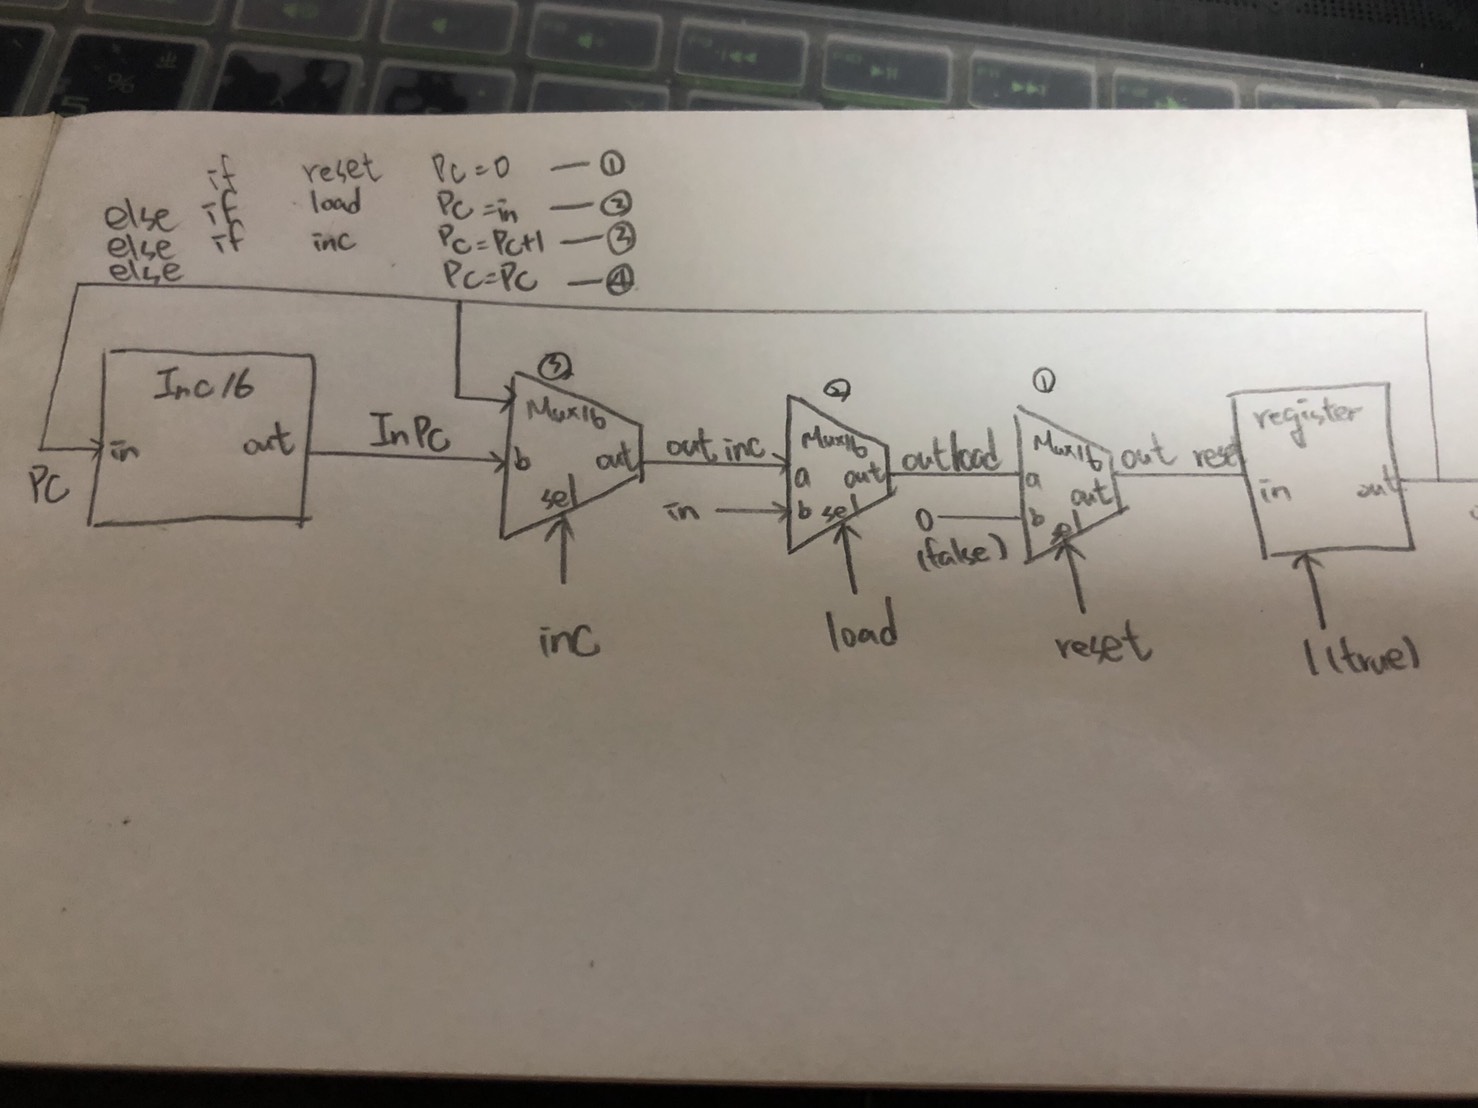 if reset PC=0 — ①
else if load PC=in — ②
else if inc PC=PC+1 — ③
else PC=PC — ④
③
②
①
Inc16
in
out
PC
InPC
Mux16
b
out
sel
inc
out inc
in
Mux16
a
out
b
sel
load
outload
0
(false)
Mux16
a
out
b
sel
reset
out reset
register
in
out
1(true)